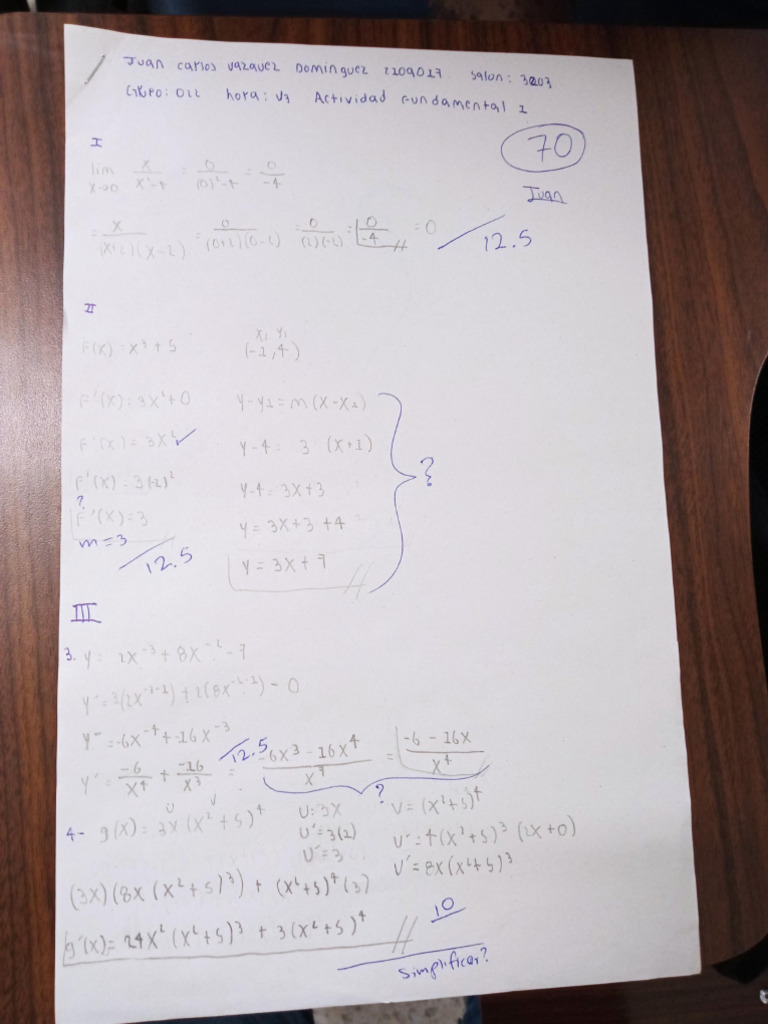 Juan carlos vazquez Dominguez 2209027 salon: 3203
Grupo: 022 hora: V3 Actividad Fundamental 1
70
Juan
I
lim x→0 x/x²-4 = 0/(0)²-4 = 0/-4
= x/(x+2)(x-2) = 0/(0+2)(0-2) = 0/(2)(-2) = 0/-4 = 0
12.5
II
F(x) = x³ + 5
x₁ y₁
(-1, 4)
F'(x) = 3x² + 0
F'(x) = 3x² ✓
F'(x) = 3(-1)²
?
F'(x) = 3
m = 3
12.5
y-y1 = m(x-x1)
y-4 = 3 (x+1)
y-4 = 3x+3
y = 3x+3+4
y = 3x+7
?
III
3. y = 2x⁻³ + 8x⁻² - 7
y' = ⁻³(2x⁻³⁻¹) + 2(8x⁻²⁻¹) - 0
y' = -6x⁻⁴ + -16x⁻³
12.5
y' = -6/x⁴ + -16/x³ = -6x³ - 16x⁴/x⁷ = -6 - 16x/x⁴
?
U V
4- g(x) = 3x(x²+5)⁴
U: 3x
U' = 3(1)
U' = 3
V = (x²+5)⁴
V' = 4(x²+5)³ (2x+0)
V' = 8x(x²+5)³
(3x)(8x(x²+5)³) + (x²+5)⁴(3)
g'(x) = 24x²(x²+5)³ + 3(x²+5)⁴
10
Simplificar?